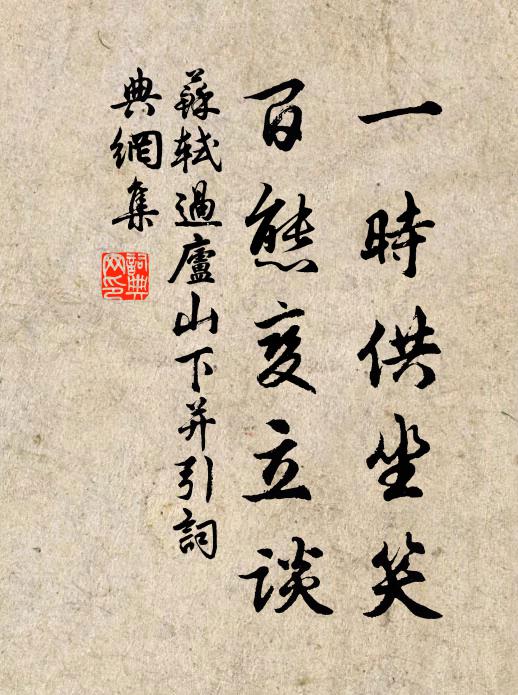 一時供坐笑
百態变立谈
蘇軾過廬山下并引詞
典網集
詞典
网印